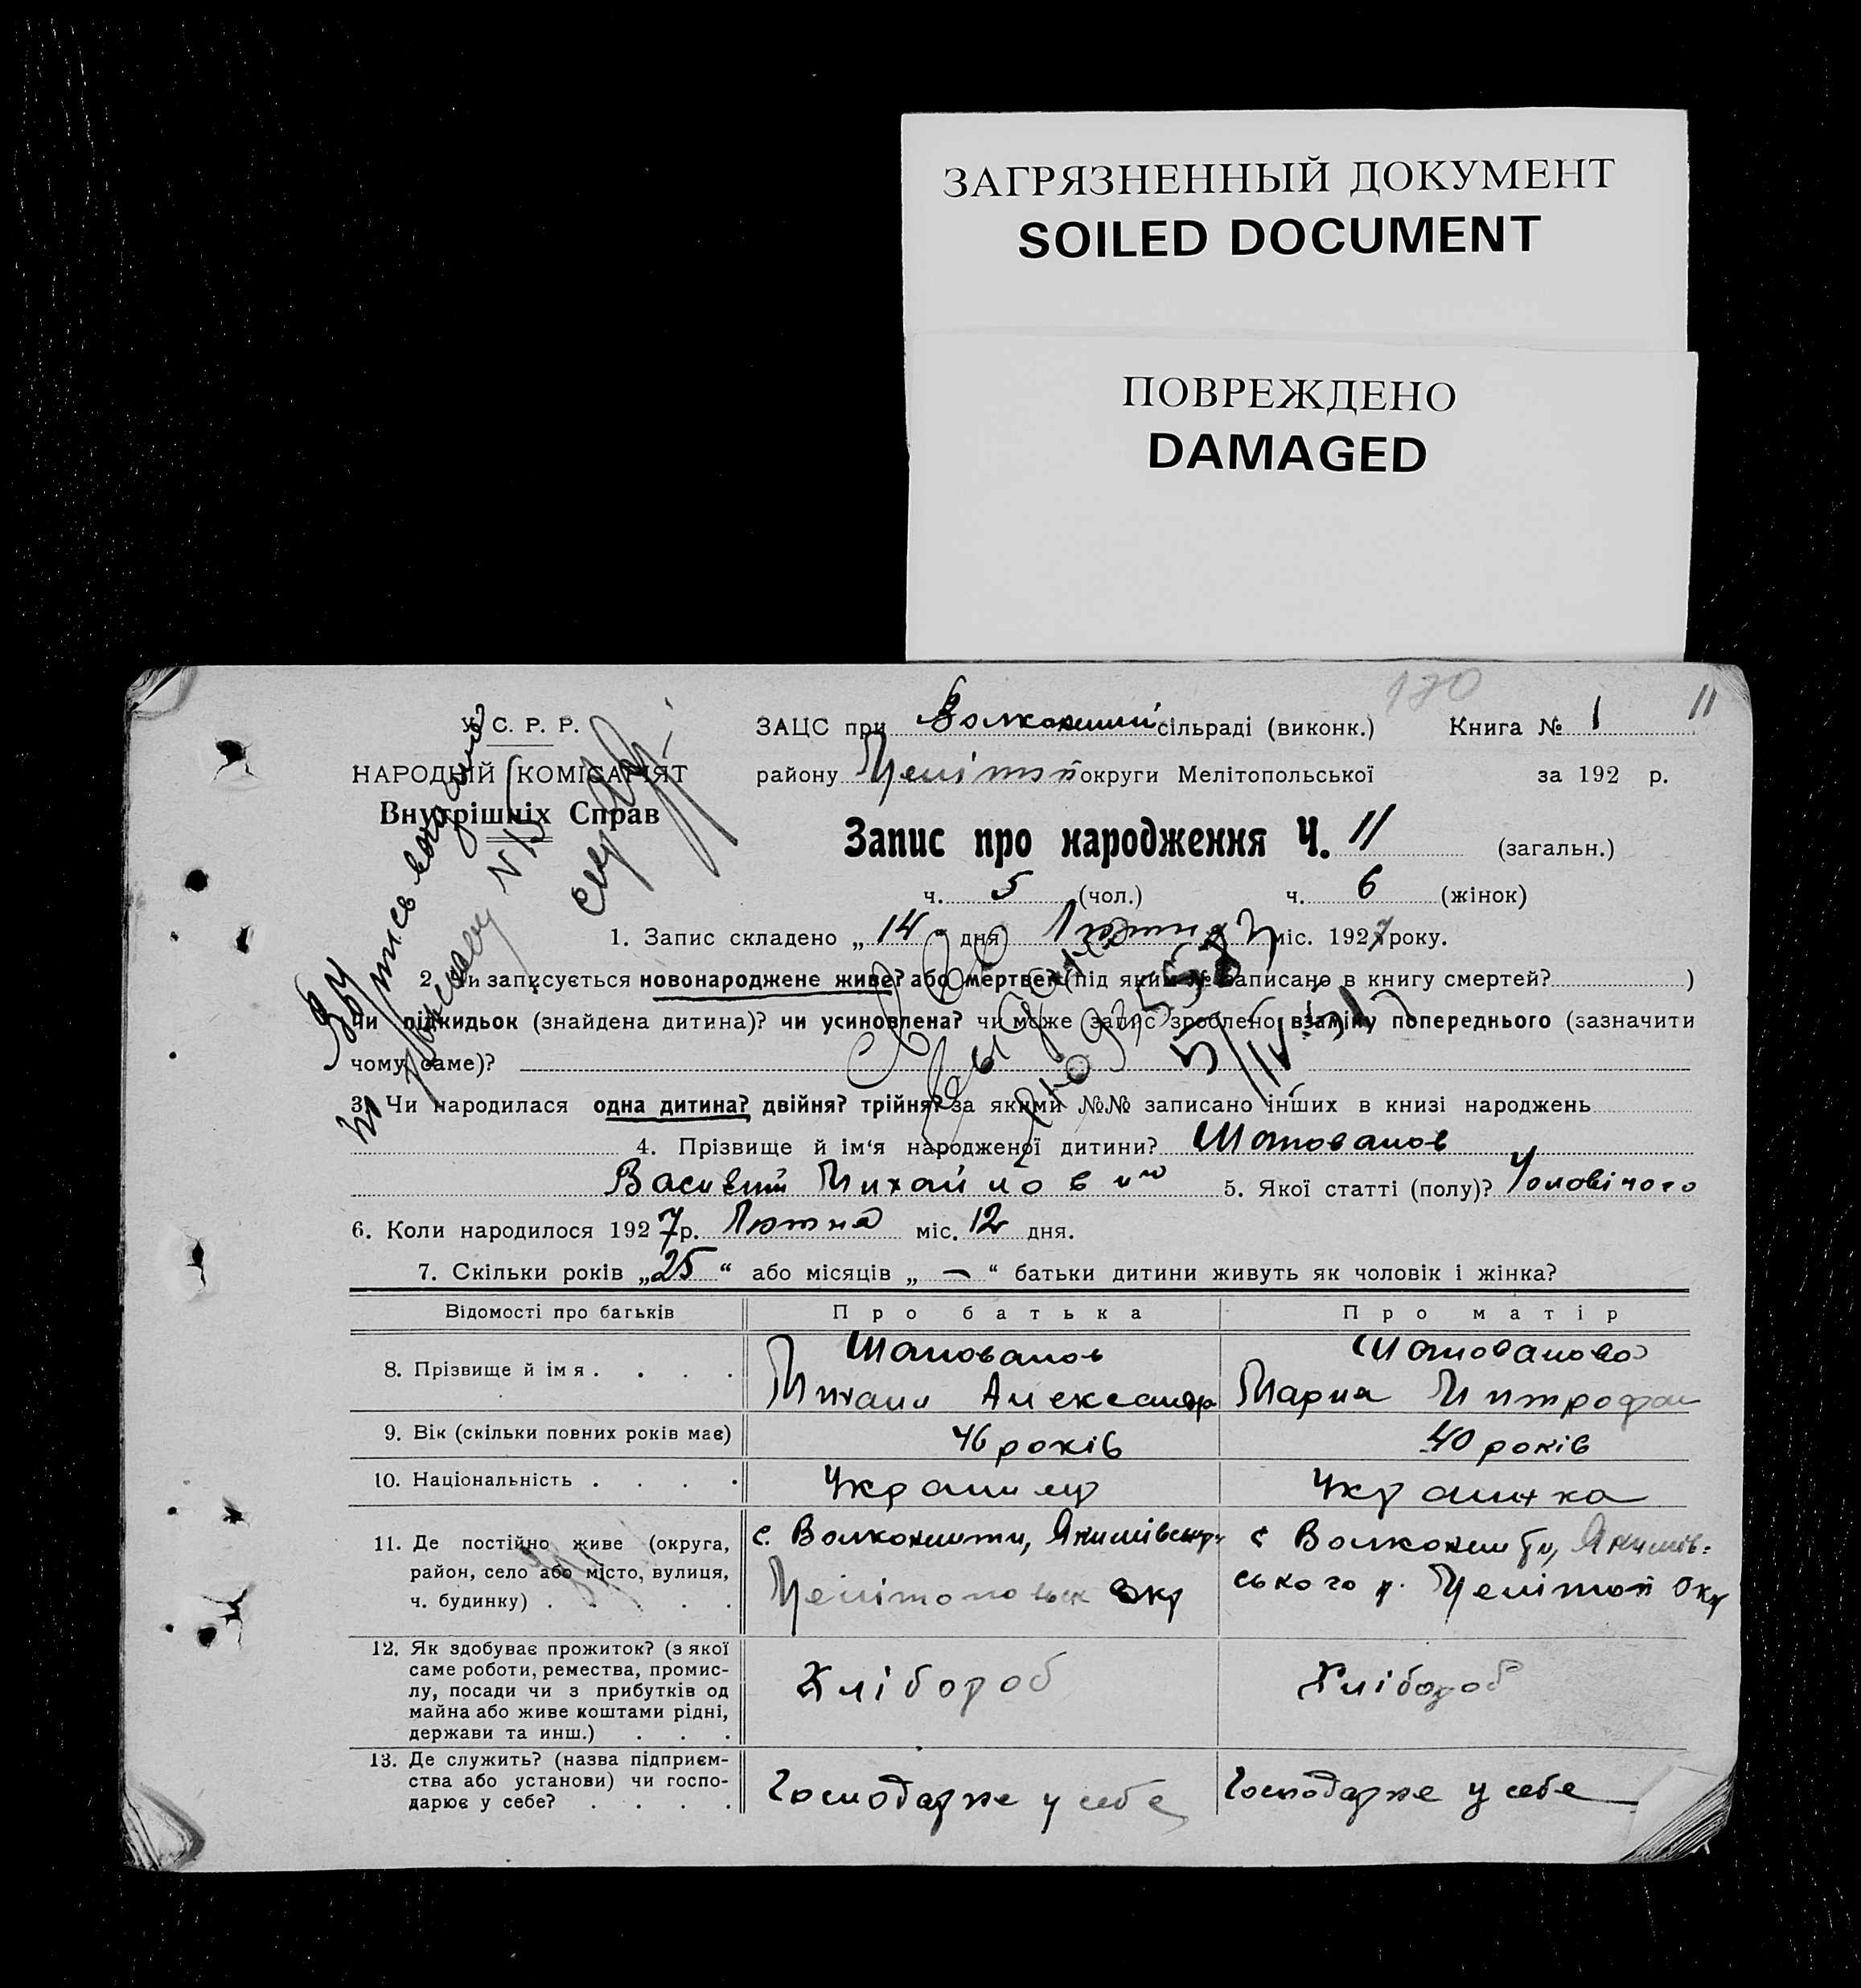 ЗАГРЯЗНЕННЫЙ ДОКУМЕНТ
SOILED DOCUMENT
ПОВРЕЖДЕНО
DAMAGED
180 11
У. С. Р. Р.
НАРОДНІЙ КОМІСАРІЯТ
Внутрішніх Справ
ЗАЦС при сільраді (виконк.) Книга № 1
району Мелітоп округи Мелітопольської за 192 р.
Запис про народження Ч. 11 (загальн.)
ч. 5 (чол.) ч. 6 (жінок)
1. Запис складено „ 14 “ дня Лютня міс. 1927 року.
2. Чи записується новонароджене живе? або мертве? (під яким № записано в книгу смертей? )
чи підкидьок (знайдена дитина)? чи усиновлена? чи може запис зроблено взаміну попереднього (зазначити
чому саме)?
3. Чи народилася одна дитина? двійня? трійня? за якими №№ записано інших в книзі народжень
4. Прізвище й ім‘я народженої дитини? Шаповалов
Василий Михайлович 5. Якої статті (полу)? Чоловічого
6. Коли народилося 1927 р. Лютня міс. 12 дня.
7. Скільки років „25“ або місяців „ — “ батьки дитини живуть як чоловік і жінка?
Відомості про батьків Про батька Про матір
8. Прізвище й імя . . . . Шаповалов Шаповалова
Михаил Александр Мария Митрофан
9. Вік (скільки повних років має) 46 років 40 років
10. Національність . . . . Українец Українка
11. Де постійно живе (округа,
район, село або місто, вулиця,
ч. будинку) . . . . .
с. Волконешти, Якимівськ
Мелітопольськ Окр
с Волконешти, Якимів-
ського р. Мелітоп Окр
12. Як здобуває прожиток? (з якої
саме роботи, ремества, промис-
лу, посади чи з прибутків од
майна або живе коштами рідні,
держави та инш.) . . .
Хлібороб Хлібороб
13. Де служить? (назва підприєм-
ства або установи) чи госпо-
дарює у себе? . . . .
Господарює у себе Господарює у себе